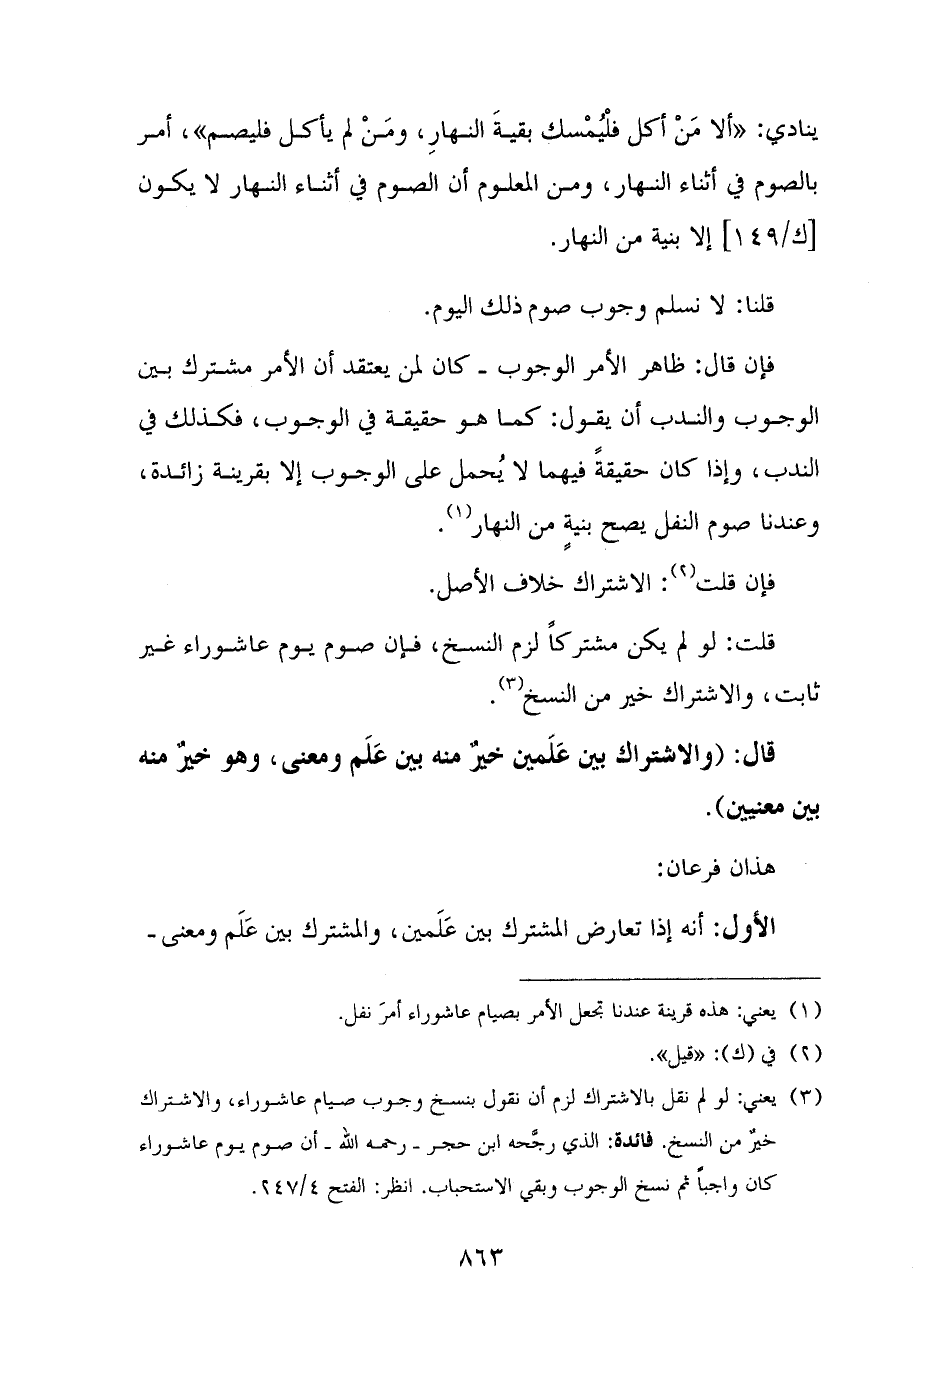 ينادي: «ألا مَنْ أكل فلْيُمْسِك بقيةَ النهار، ومَنْ لم يأكل فليصم»، أمر
بالصوم في أثناء النهار، ومن المعلوم أن الصوم في أثناء النهار لا يكون
[ك/١٤٩] إلا بنية من النهار.
قلنا: لا نسلم وجوب صوم ذلك اليوم.
فإن قال: ظاهر الأمر الوجوب ـ كان لمن يعتقد أن الأمر مشترك بين
الوجوب والندب أن يقول: كما هو حقيقة في الوجوب، فكذلك في
الندب، وإذا كان حقيقةً فيهما لا يُحمل على الوجوب إلا بقرينة زائدة،
وعندنا صوم النفل يصح بنيةٍ من النهار(١).
فإن قلت(٢): الاشتراك خلاف الأصل.
قلت: لو لم يكن مشتركاً لزم النسخ، فإن صوم يوم عاشوراء غير
ثابت، والاشتراك خير من النسخ(٣).
قال: (والاشتراك بين عَلَمين خيرٌ منه بين عَلَم ومعنى، وهو خيرٌ منه
بين معنيين).
هذان فرعان:
الأول: أنه إذا تعارض المشترك بين عَلَمين، والمشترك بين عَلَم ومعنى ـ
(١) يعني: هذه قرينة عندنا تجعل الأمر بصيام عاشوراء أمرَ نفل.
(٢) في (ك): «قيل».
(٣) يعني: لو لم نقل بالاشتراك لزم أن نقول بنسخ وجوب صيام عاشوراء، والاشتراك
خيرٌ من النسخ. فائدة: الذي رجَّحه ابن حجر ـ رحمه الله ـ أن صوم يوم عاشوراء
كان واجباً ثم نسخ الوجوب وبقي الاستحباب. انظر: الفتح ٢٤٧/٤.
٨٦٣